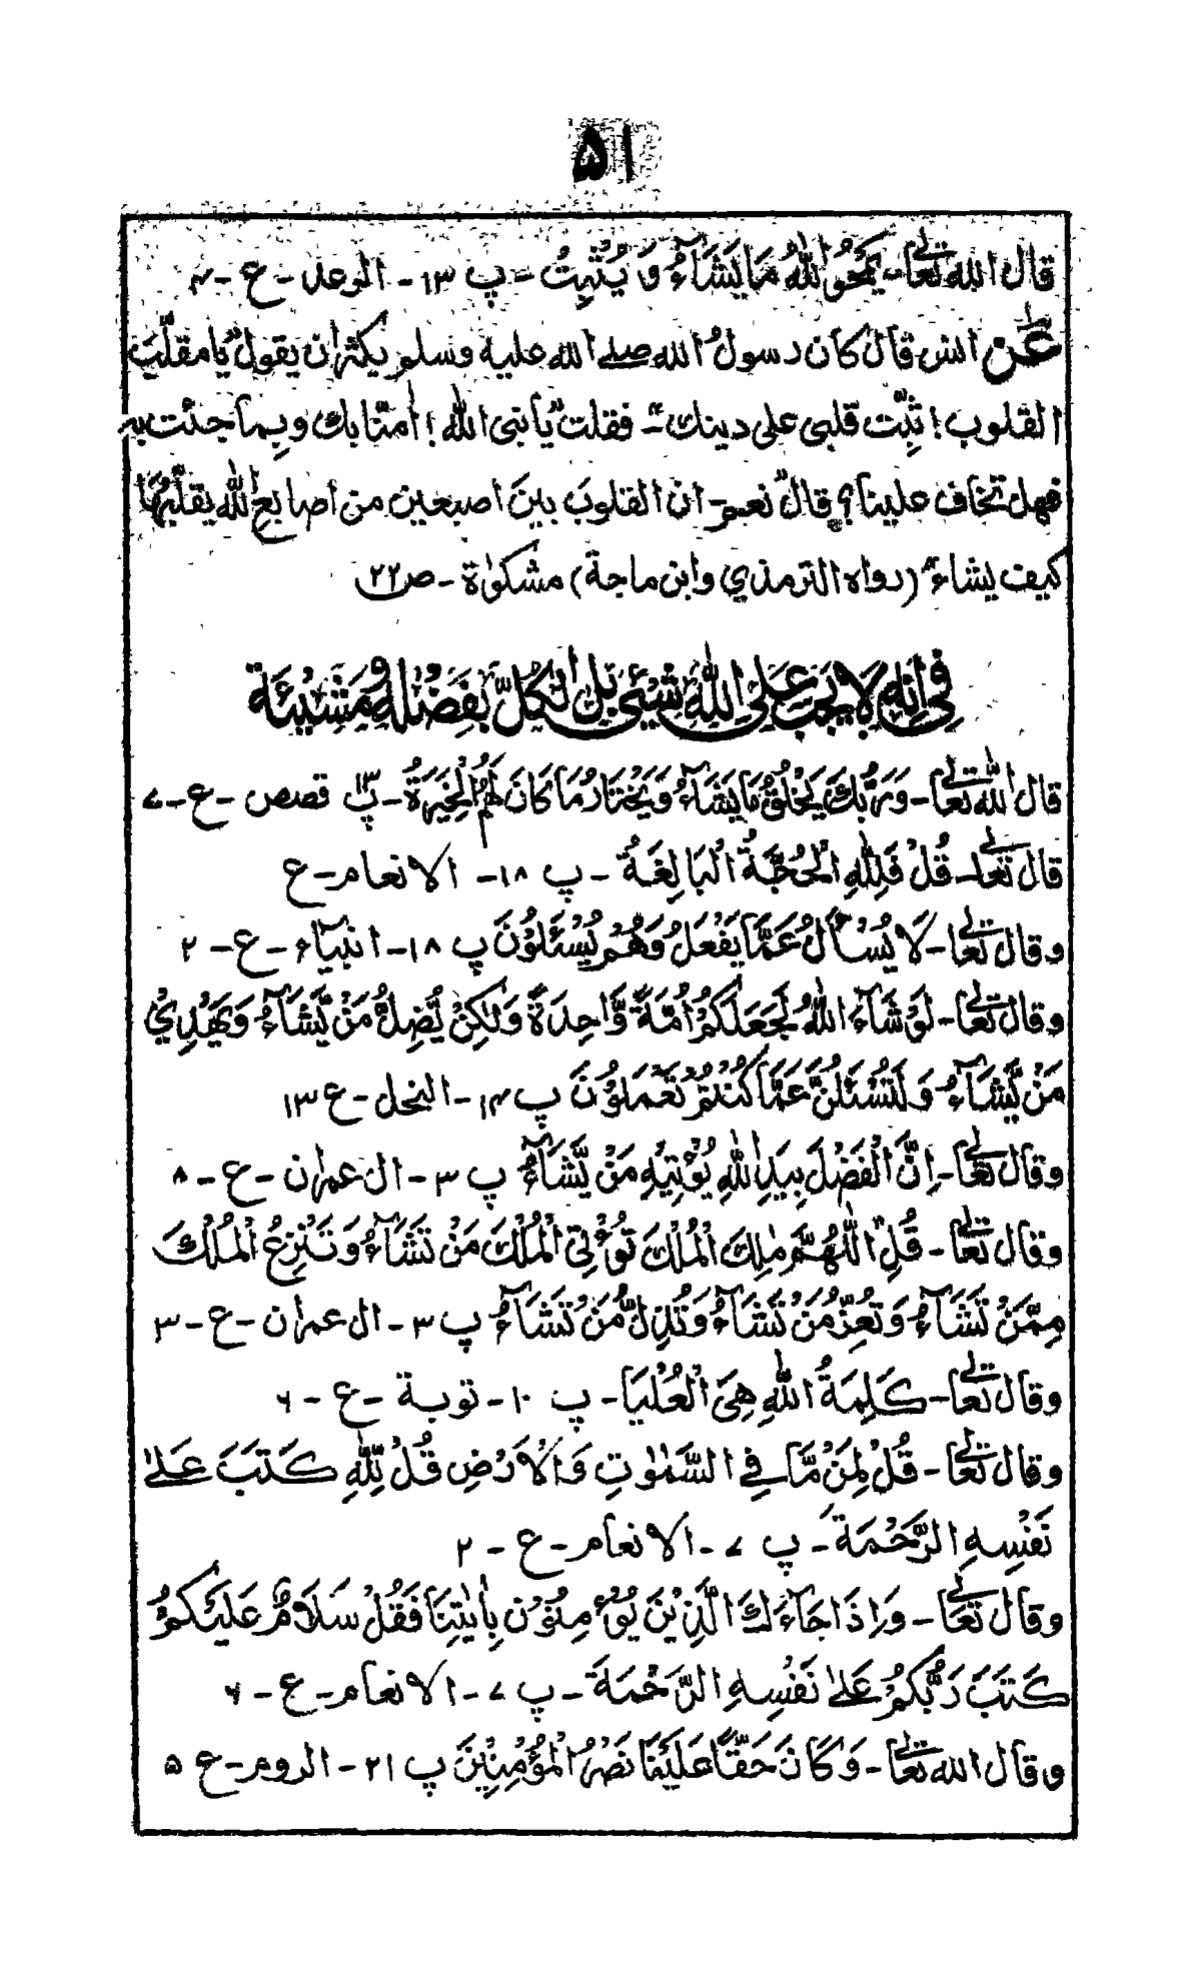 ۵۱
قال الله تعالیٰ۔ یَمْحُو اللّٰهُ مَا یَشَآءُ وَ یُثْبِتُ۔ پ ۱۳۔ الوعد۔ ع۔ ۴
عَن انس قال کان رسولُ الله صلے الله علیه وسلم یکثر ان یقول یا مقلّبَ
القلوب! ثبّت قلبی علی دینك۔ فقلت یا نبی اللهِ! اٰمنّا بك وبِما جئت به
فهل تخاف علینا؟ قال نعم۔ ان القلوبَ بینَ اصبعین من اصابعِ الله یقلّبُهَا
کیف یشاء (رواه الترمذي وابن ماجة) مشکوٰة۔ ص۲۲
فِی اَنَّهٗ لَا یَجِبُ عَلَی اللّٰهِ شَیْئٌ بَلِ الْکُلُّ بِفَضْلِهٖ وَمَشِیْئَة
قال الله تعالیٰ۔ وَرَبُّكَ یَخْلُقُ مَا یَشَآءُ وَیَخْتَارُ مَا کَانَ لَهُمُ الْخِیَرَةُ۔ پ۱۳ قصص۔ ع۔ ۷
قال تعالیٰ۔ قُلْ فَلِلّٰهِ الْحُجَّةُ الْبَالِغَةُ۔ پ ۱۸۔ الانعام۔ ع
وقال تعالیٰ۔ لَا یُسْأَلُ عَمَّا یَفْعَلُ وَهُمْ یُسْئَلُوْنَ پ ۱۸۔ انبیآء۔ ع۔ ۲
وقال تعالیٰ۔ لَوْ شَآءَ اللّٰهُ لَجَعَلَکُمْ اُمَّةً وَّاحِدَةً وَلٰکِنْ یُّضِلُّ مَنْ یَّشَآءُ وَیَهْدِیْ
مَنْ یَّشَآءُ وَلَتُسْئَلُنَّ عَمَّا کُنْتُمْ تَعْمَلُوْنَ پ ۱۴۔ النحل۔ ع ۱۳
وقال تعالیٰ۔ اِنَّ الْفَضْلَ بِیَدِ اللّٰهِ یُؤْتِیْهِ مَنْ یَّشَآءُ پ ۳۔ ال عمران۔ ع۔ ۸
وقال تعالیٰ۔ قُلِ اللّٰهُمَّ مٰلِكَ الْمُلْكَ تُؤْتِی الْمُلْكَ مَنْ تَشَآءُ وَتَنْزِعُ الْمُلْكَ
مِمَّنْ تَشَآءُ وَتُعِزُّ مَنْ تَشَآءُ وَتُذِلُّ مَنْ تَشَآءُ پ ۳۔ ال عمران۔ ع۔ ۳
وقال تعالیٰ۔ کَلِمَةُ اللّٰهِ هِیَ الْعُلْیَا۔ پ ۱۰۔ توبة۔ ع۔ ۶
وقال تعالیٰ۔ قُلْ لِمَنْ مَّا فِی السَّمٰوٰتِ وَالْاَرْضِ قُلْ لِلّٰهِ کَتَبَ عَلیٰ
نَفْسِهِ الرَّحْمَةَ۔ پ ۷۔ الانعام۔ ع۔ ۲
وقال تعالیٰ۔ وَاِذَا جَآءَكَ الَّذِیْنَ یُؤْمِنُوْن بِاٰیٰتِنَا فَقُلْ سَلَامٌ عَلَیْکُمْ
کَتَبَ رَبُّکُمْ عَلیٰ نَفْسِهِ الرَّحْمَةَ۔ پ ۷۔ الانعام۔ ع۔ ۶
وقال الله تعالیٰ۔ وَکَانَ حَقًّا عَلَیْنَا نَصْرُ الْمُؤْمِنِیْنَ پ ۲۱۔ الروم۔ ع ۵